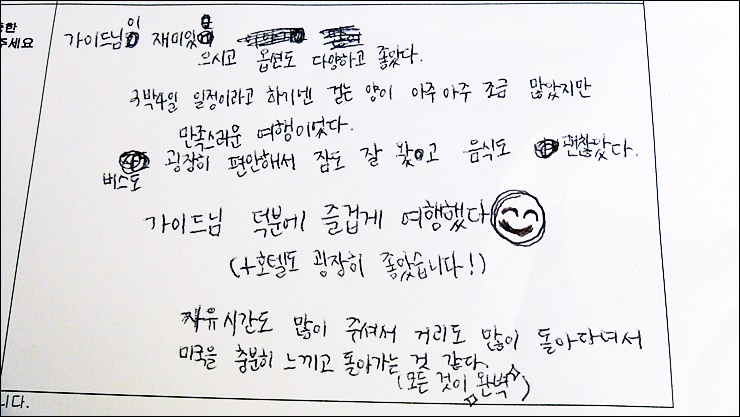 한
주세요
가이드님이 재미있
으시고 옵션도 다양하고 좋았다.
3박4일 일정이라고 하기엔 걷는 양이 아주아주 조금 많았지만
만족스러운 여행이었다.
버스도 굉장히 편안해서 잠도 잘 잤고 음식도 괜찮았다.
가이드님 덕분에 즐겁게 여행했다
(+호텔도 굉장히 좋았습니다!)
자유시간도 많이 주셔서 거리도 많이 돌아다녀서
미국을 충분히 느끼고 돌아가는 것 같다.
(모든 것이 완벽)
니다.